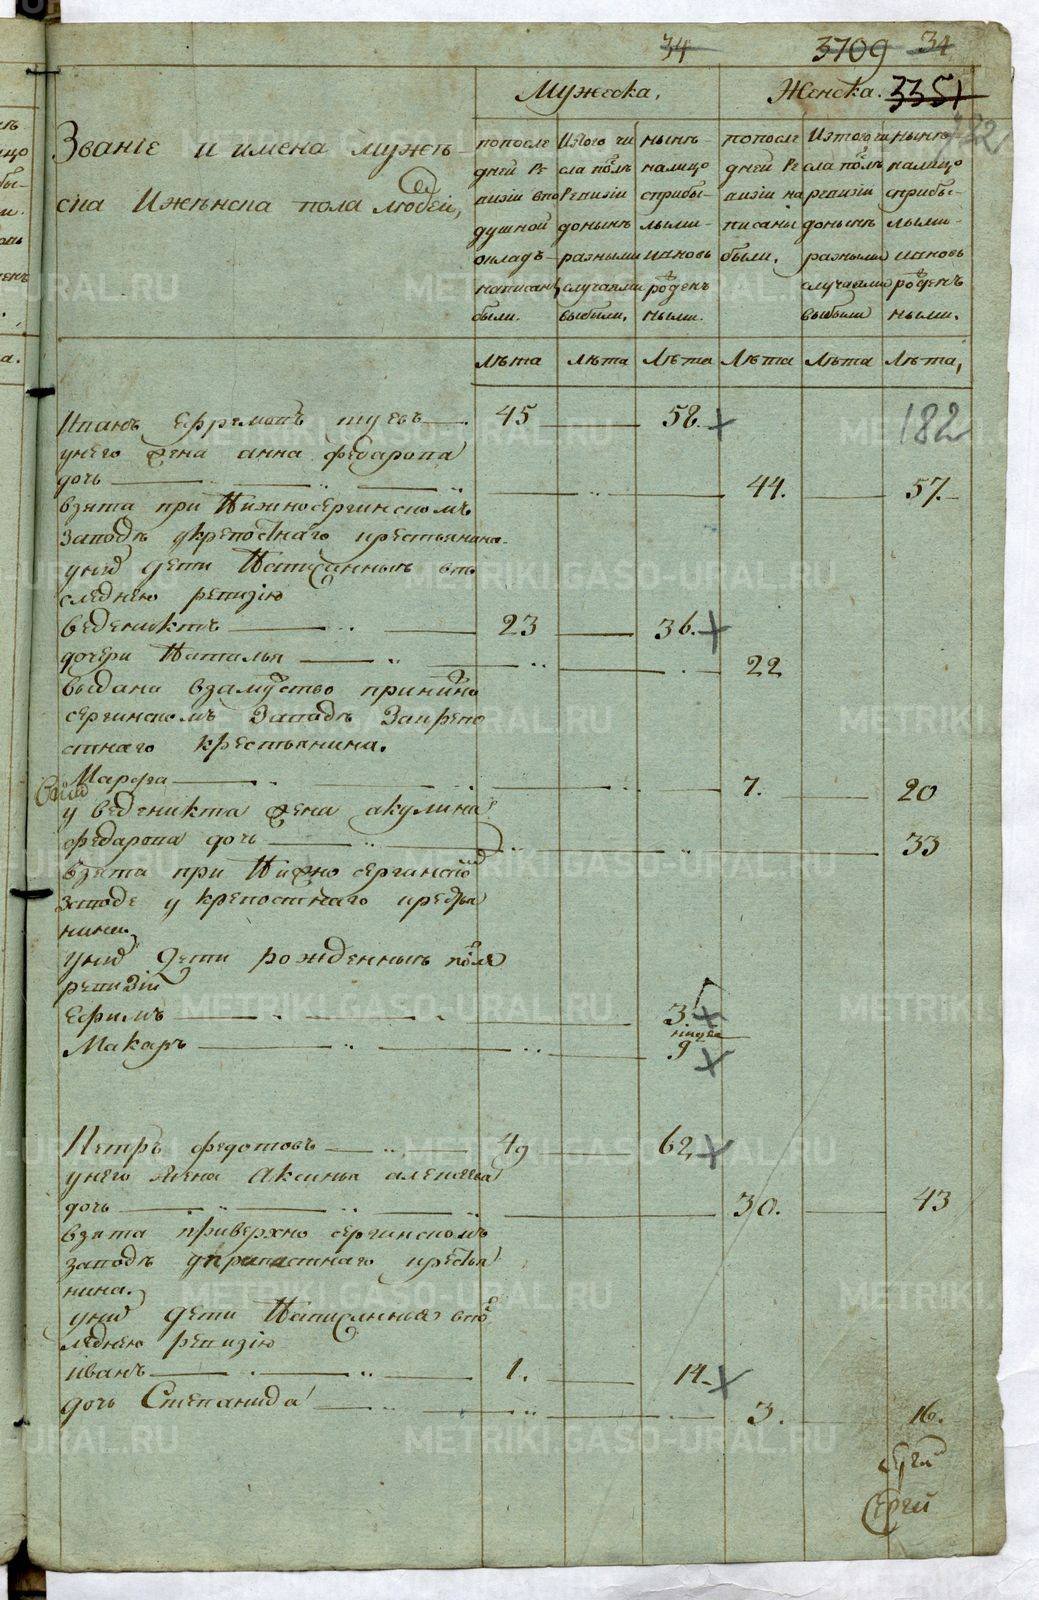 34
3709 34
Мужеска. Женска. 3351
182
Званіе и имена мужеска
и женска пола людей,
попоследней ревизии в подушной окладъ написаны были.
Изтого числа послѣ ревизіи донынѣ разными случаями выбыли,
нынѣ налицо сприбылыми и вновь рожденными.
попоследней ревизіи написаны были.
Изтого числа послѣ ревизіи донынѣ разными случаями выбыли
нынѣ налицо сприбылыми и вновь рожденными.
лѣта лѣта лѣта лѣта лѣта лѣта,
Ефремовъ 45 58.
182
унего жена анна федарова
дочь 44. 57.
взята при Нижносергинскомъ
заводѣ укрепостнаго крестьянина
унихъ дети Написанныя впо
следнею ревизію
веденихтъ 23 36.
дочери Наталья 22
выдана взамужство принижно
сергинскомъ Заводѣ Закрепо
стнаго крестьянина.
Марфа 7. 20
у веденикта жена акулина
федарова дочь 33
взята при Нижно сергинском
заводе у крепостнаго крестья
нина.
унихъ дети рожденныя после
ревизіи
Ефимъ 3.
недель
Макаръ 9
Петръ федотовъ 49 62,
унего жена Аксинья алексеева
дочь 30. 43
взята приверхно сергинскомъ
заводѣ укрепостнаго крестья
нина.
унихъ дети Написанныя впос
леднею ревизію
иванъ 1. 14.
дочь Степанида 3. 16.
Сергей